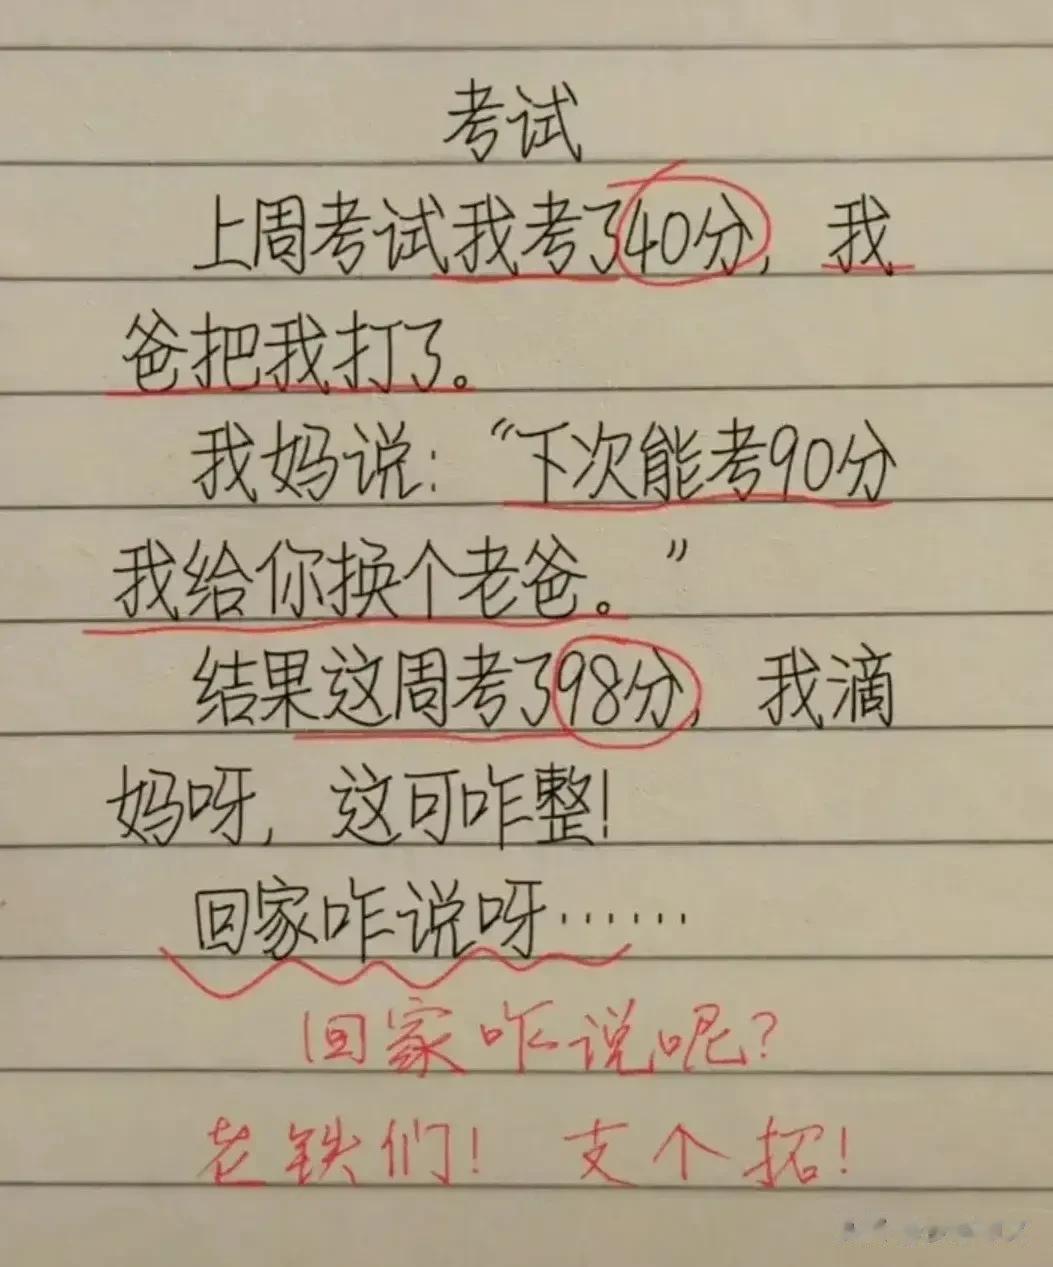 考试
上周考试我考了40分，我
爸把我打了。
我妈说：“下次能考90分
我给你换个老爸。”
结果这周考了98分，我滴
妈呀，这可咋整！
回家咋说呀……
回家咋说呢？
老铁们！支个招！